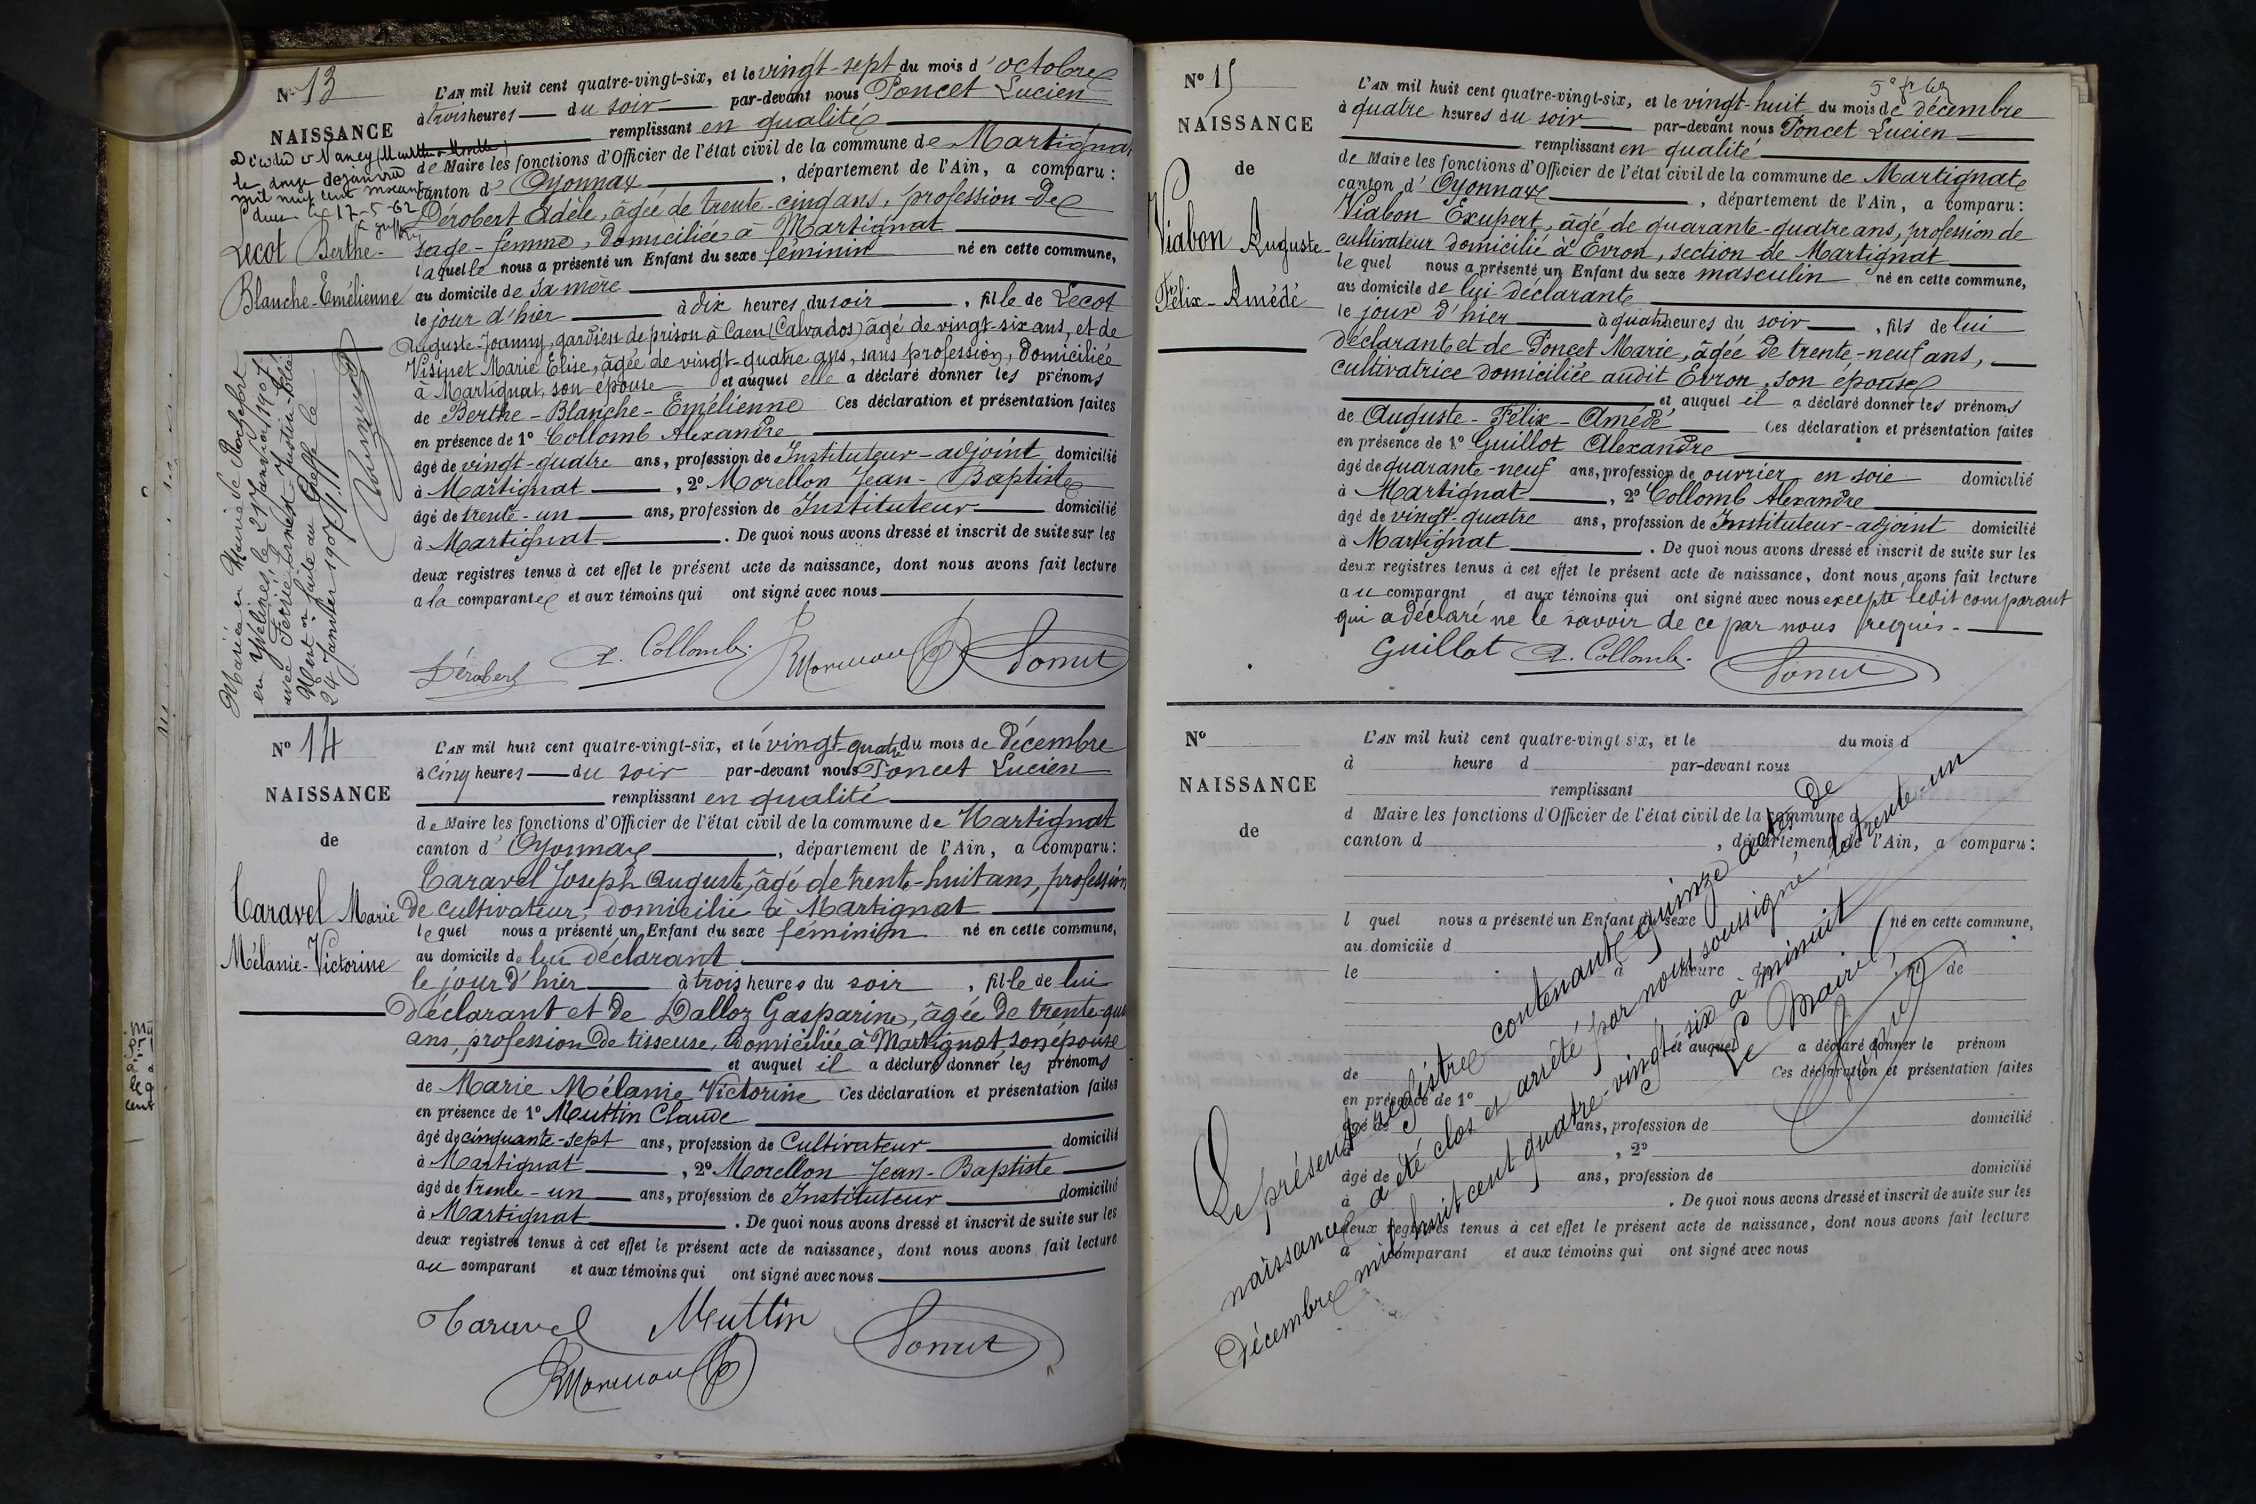 N° 13
NAISSANCE
Décédée à Nancy (Meurthe & Moselle)
le douze de janvier
mil neuf cent soixante
le 17-5-62
Lecot Berthe-
Blanche-Emélienne
Mariée en Mairie de Rochefort
en Yvelines le 21 janvier 1907
avec Ernest Justin
Ment on faite au Greffe le
24 Janvier 1907
L'AN mil huit cent quatre-vingt-six, et le vingt-sept du mois d'octobre
à trois heures du soir par-devant nous Poncet Lucien
remplissant en qualité
de Maire les fonctions d'Officier de l'état civil de la commune de Martignat
canton d'Oyonnax, département de l'Ain, a comparu:
Dérobert Adèle, âgée de trente-cinq ans, profession de
sage-femme, domiciliée à Martignat
laquelle nous a présenté un Enfant du sexe féminin né en cette commune,
au domicile de sa mère
le jour d'hier à dix heures du soir, fille de Lecot
Auguste-Joanny, gardien de prison à Caen (Calvados) âgé de vingt-six ans, et de
Visinet Marie Elise, âgée de vingt-quatre ans, sans profession, domiciliée
à Martignat, son épouse et auquel elle a déclaré donner les prénoms
de Berthe-Blanche-Emélienne Ces déclaration et présentation faites
en présence de 1° Collomb Alexandre
âgé de vingt-quatre ans, profession de Instituteur-adjoint domicilié
à Martignat, 2° Morellon Jean-Baptiste
âgé de trente-un ans, profession de Instituteur domicilié
à Martignat. De quoi nous avons dressé et inscrit de suite sur les
deux registres tenus à cet effet le présent acte de naissance, dont nous avons fait lecture
a la comparante et aux témoins qui ont signé avec nous
Dérobert A. Collomb. Morellon Poncet
N° 14
NAISSANCE
de
Caravel Marie
Mélanie-Victorine
L'AN mil huit cent quatre-vingt-six, et le vingt-quatre du mois de Décembre
à cinq heures du soir par-devant nous Poncet Lucien
remplissant en qualité
de Maire les fonctions d'Officier de l'état civil de la commune de Martignat
canton d'Oyonnax, département de l'Ain, a comparu:
Caravel Joseph Auguste, âgé de trente-huit ans, profession
de cultivateur, domicilié à Martignat
lequel nous a présenté un Enfant du sexe féminin né en cette commune,
au domicile de lui déclarant
le jour d'hier à trois heures du soir, fille de lui
déclarant et de Dalloz Gasparine, âgée de trente-
ans, profession de tisseuse, domiciliée à Martignat, son épouse
et auquel il a déclaré donner les prénoms
de Marie Mélanie Victorine Ces déclaration et présentation faites
en présence de 1° Muttin Claude
âgé de cinquante-sept ans, profession de Cultivateur domicilié
à Martignat, 2° Morellon Jean-Baptiste
âgé de trente-un ans, profession de Instituteur domicilié
à Martignat. De quoi nous avons dressé et inscrit de suite sur les
deux registres tenus à cet effet le présent acte de naissance, dont nous avons fait lecture
au comparant et aux témoins qui ont signé avec nous
Caravel Muttin Poncet
Morellon
N° 15
NAISSANCE
de
Viabon Auguste-
Félix-Amédé
L'AN mil huit cent quatre-vingt-six, et le vingt-huit du mois de décembre
à quatre heures du soir par-devant nous Poncet Lucien
remplissant en qualité
de Maire les fonctions d'Officier de l'état civil de la commune de Martignat
canton d'Oyonnax, département de l'Ain, a comparu:
Viabon Exupert, âgé de quarante-quatre ans, profession de
cultivateur domicilié à Evron, section de Martignat
lequel nous a présenté un Enfant du sexe masculin né en cette commune,
au domicile de lui déclarant
le jour d'hier à quatre heures du soir, fils de lui
déclarant et de Poncet Marie, âgée de trente-neuf ans,
cultivatrice domiciliée audit Evron, son épouse
et auquel il a déclaré donner les prénoms
de Auguste-Félix-Amédé Ces déclaration et présentation faites
en présence de 1° Guillot Alexandre
âgé de quarante-neuf ans, profession de ouvrier en soie domicilié
à Martignat, 2° Collomb Alexandre
âgé de vingt-quatre ans, profession de Instituteur-adjoint domicilié
à Martignat. De quoi nous avons dressé et inscrit de suite sur les
deux registres tenus à cet effet le présent acte de naissance, dont nous avons fait lecture
au comparant et aux témoins qui ont signé avec nous excepté ledit comparant
qui a déclaré ne le savoir de ce par nous requis.
Guillot A. Collomb. Poncet
N°
NAISSANCE
de
L'AN mil huit cent quatre-vingt six, et le du mois d
à heure d par-devant nous
remplissant
d Maire les fonctions d'Officier de l'état civil de la commune d
canton d , département de l'Ain, a comparu:
l quel nous a présenté un Enfant du sexe né en cette commune,
au domicile d
le à heure de
et auquel a déclaré donner le prénom
de Ces déclaration et présentation faites
en présence de 1°
âgé de ans, profession de domicilié
à , 2°
âgé de ans, profession de domicilié
à . De quoi nous avons dressé et inscrit de suite sur les
deux registres tenus à cet effet le présent acte de naissance, dont nous avons fait lecture
a comparant et aux témoins qui ont signé avec nous
Le présent registre contenant quinze actes de
naissance a été clos et arrêté par nous soussigné, le trente-un
Décembre mil huit cent quatre-vingt-six à minuit
Le Maire,
Poncet